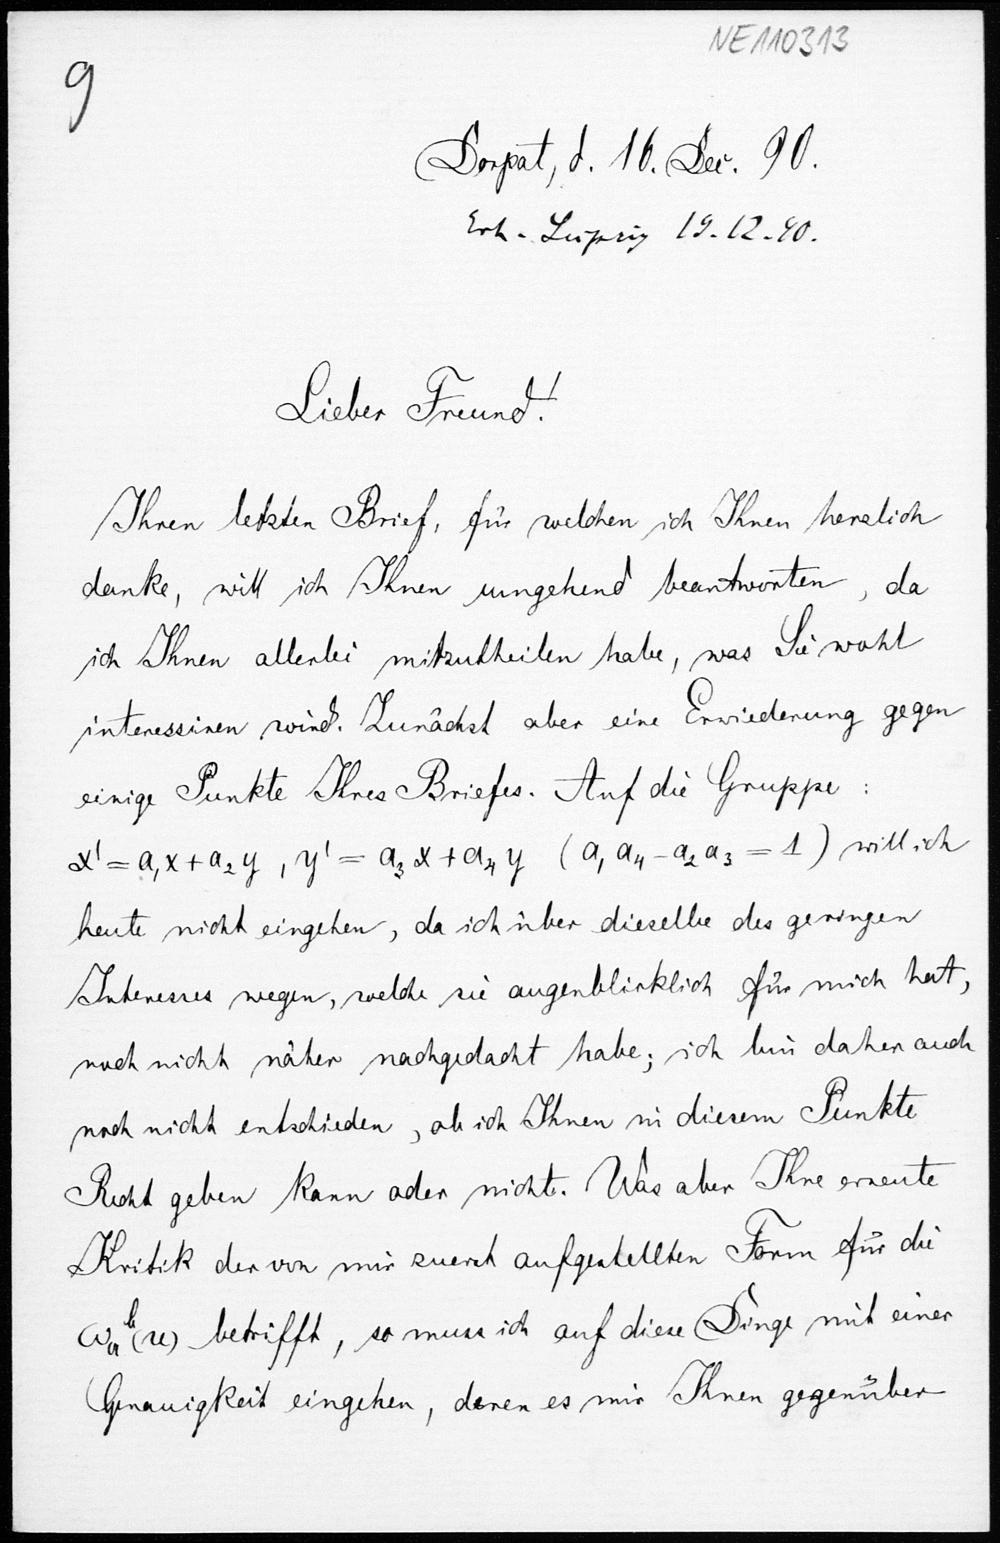 NE110313
9
Dorpat, d. 16. Dec. 90.
Erh. Leipzig 19.12.90.
Lieber Freund!
Ihren letzten Brief, für welchen ich Ihnen herzlich
danke, will ich Ihnen umgehend beantworten, da
ich Ihnen allerlei mitzutheilen habe, was Sie wohl
interessiren wird. Zunächst aber eine Erwiederung gegen
einige Punkte Ihres Briefes. Auf die Gruppe:
x' = a₁x + a₂y, y' = a₃x + a₄y (a₁a₄ - a₂a₃ = 1) will ich
heute nicht eingehen, da ich über dieselbe des geringen
Interesses wegen, welche sie augenblicklich für mich hat,
noch nicht näher nachgedacht habe; ich bin daher auch
noch nicht entschieden, ob ich Ihnen in diesem Punkte
Recht geben kann oder nicht. Was aber Ihre erneute
Kritik der von mir zuerst aufgestellten Form für die
ωₐᵇ(u) betrifft, so muss ich auf diese Dinge mit einer
Genauigkeit eingehen, deren es mir Ihnen gegenüber